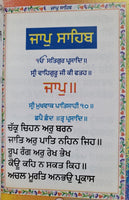 ਜਾਪੁ ਸਾਹਿਬ
ੴ ਸਤਿਗੁਰ ਪ੍ਰਸਾਦਿ॥
ਸ੍ਰੀ ਵਾਹਿਗੁਰੂ ਜੀ ਕੀ ਫਤਹ॥
ਜਾਪੁ॥
ਸ੍ਰੀ ਮੁਖਵਾਕ ਪਾਤਿਸਾਹੀ ੧੦॥
ਛਪੈ ਛੰਦ॥ ਤ੍ਵ ਪ੍ਰਸਾਦਿ॥
ਚੱਕ੍ਰ ਚਿਹਨ ਅਰੁ ਬਰਨ
ਜਾਤਿ ਅਰੁ ਪਾਤਿ ਨਹਿਨ ਜਿਹ॥
ਰੂਪ ਰੰਗ ਅਰੁ ਰੇਖ ਭੇਖ
ਕੋਊ ਕਹਿ ਨ ਸਕਤ ਕਿਹ॥
ਅਚਲ ਮੂਰਤਿ ਅਨਭਉ ਪ੍ਰਕਾਸ